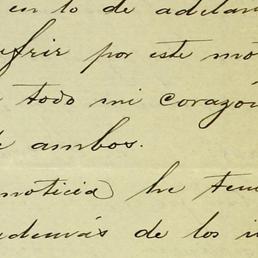 en lo de adelan
ufrir por este mo
todo mi corazón
e ambos.
noticia he ten
además de los i